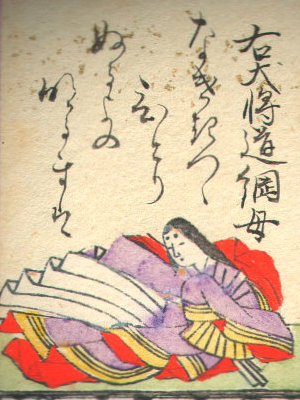 右大將道綱母
なけきつゝ
ひとり
ぬるよの
明るまは